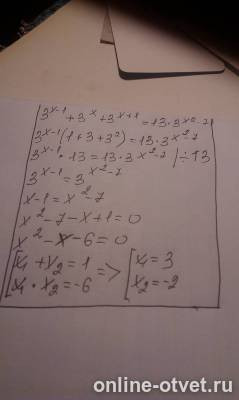 3^(x-1) + 3^x + 3^(x+1) = 13·3^(x²-7)
3^(x-1)(1+3+3²) = 13·3^(x²-7)
3^(x-1)·13 = 13·3^(x²-7) |÷13
3^(x-1) = 3^(x²-7)
x-1 = x²-7
x²-7-x+1=0
x²-x-6=0
[x₁+x₂=1 => [x₁=3
[x₁·x₂=-6 [x₂=-2
online-otvet.ru